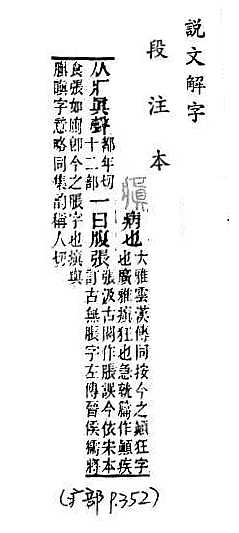 説文解字
段注本
瘨
病也大雅雲漢傳同按今之顚狂字
也廣雅瘨狂也急就篇作顚疾
从疒眞聲都年切十二部一曰腹張張汲古閣作脹誤今依宋本
訂古無脹字左傳晉侯獳將
食張如廁卽今之脹字也瘨與
瞋字意略同集韵稱人切
(疒部 p.352)